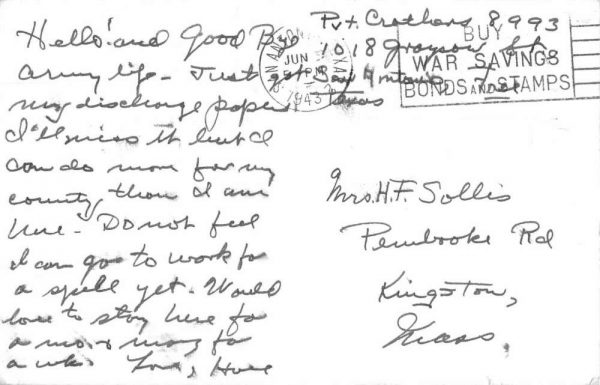 Hello! and Good Bye
Army life - Just got
my discharge papers
I'll miss it but I
can do more for my
country, than I am
here - Do not feel
I can go to work for
a spell yet. Would
love to stay here for
a mo. & may for
a wk. Love,
Pvt. Crothers 8,993
1018 Grayson St
San Antonio,
Texas
SAN ANTONIO TEXAS
JUN
PM
1943
BUY
WAR SAVINGS
BONDS AND STAMPS
Mrs. H.F. Sollis
Pembroke Rd
Kingston,
Mass.